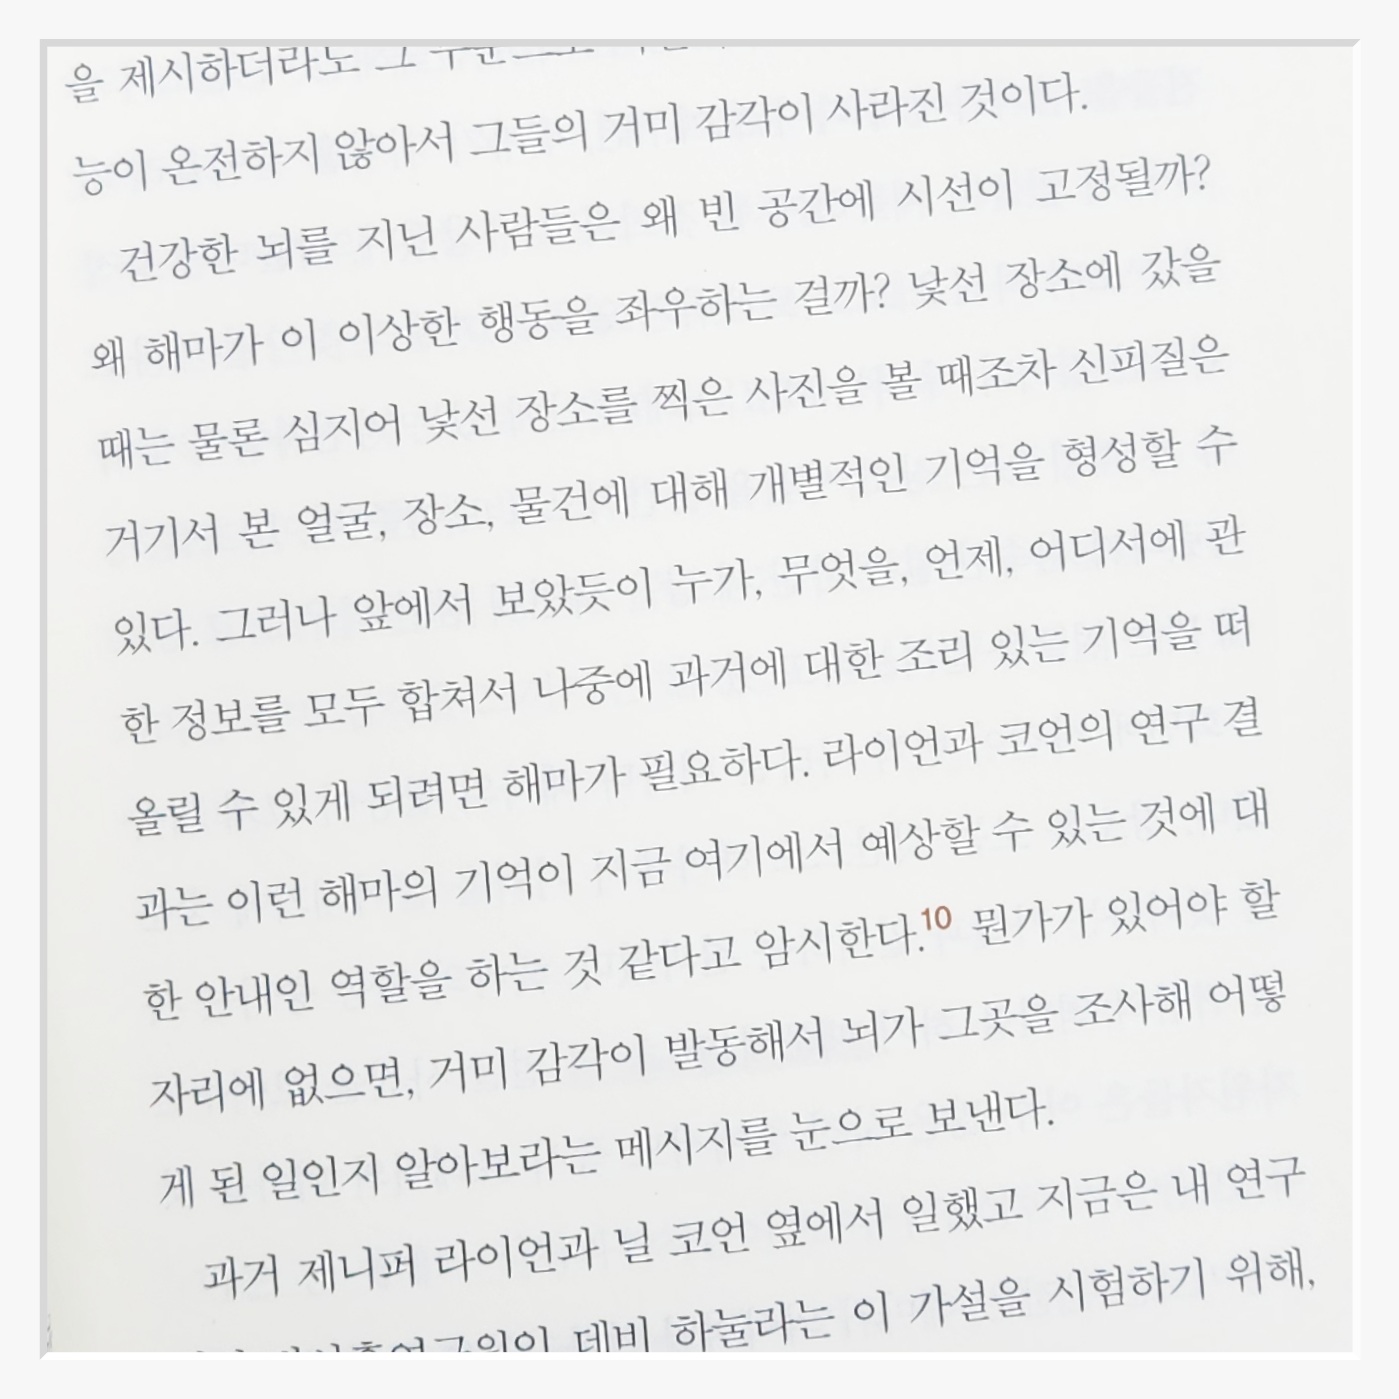 을 제시하더라도 그
능이 온전하지 않아서 그들의 거미 감각이 사라진 것이다.
건강한 뇌를 지닌 사람들은 왜 빈 공간에 시선이 고정될까?
왜 해마가 이 이상한 행동을 좌우하는 걸까? 낯선 장소에 갔을
때는 물론 심지어 낯선 장소를 찍은 사진을 볼 때조차 신피질은
거기서 본 얼굴, 장소, 물건에 대해 개별적인 기억을 형성할 수
있다. 그러나 앞에서 보았듯이 누가, 무엇을, 언제, 어디서에 관
한 정보를 모두 합쳐서 나중에 과거에 대한 조리 있는 기억을 떠
올릴 수 있게 되려면 해마가 필요하다. 라이언과 코언의 연구 결
과는 이런 해마의 기억이 지금 여기에서 예상할 수 있는 것에 대
한 안내인 역할을 하는 것 같다고 암시한다.10 뭔가가 있어야 할
자리에 없으면, 거미 감각이 발동해서 뇌가 그곳을 조사해 어떻
게 된 일인지 알아보라는 메시지를 눈으로 보낸다.
과거 제니퍼 라이언과 닐 코언 옆에서 일했고 지금은 내 연구
데비 하눌라는 이 가설을 시험하기 위해,